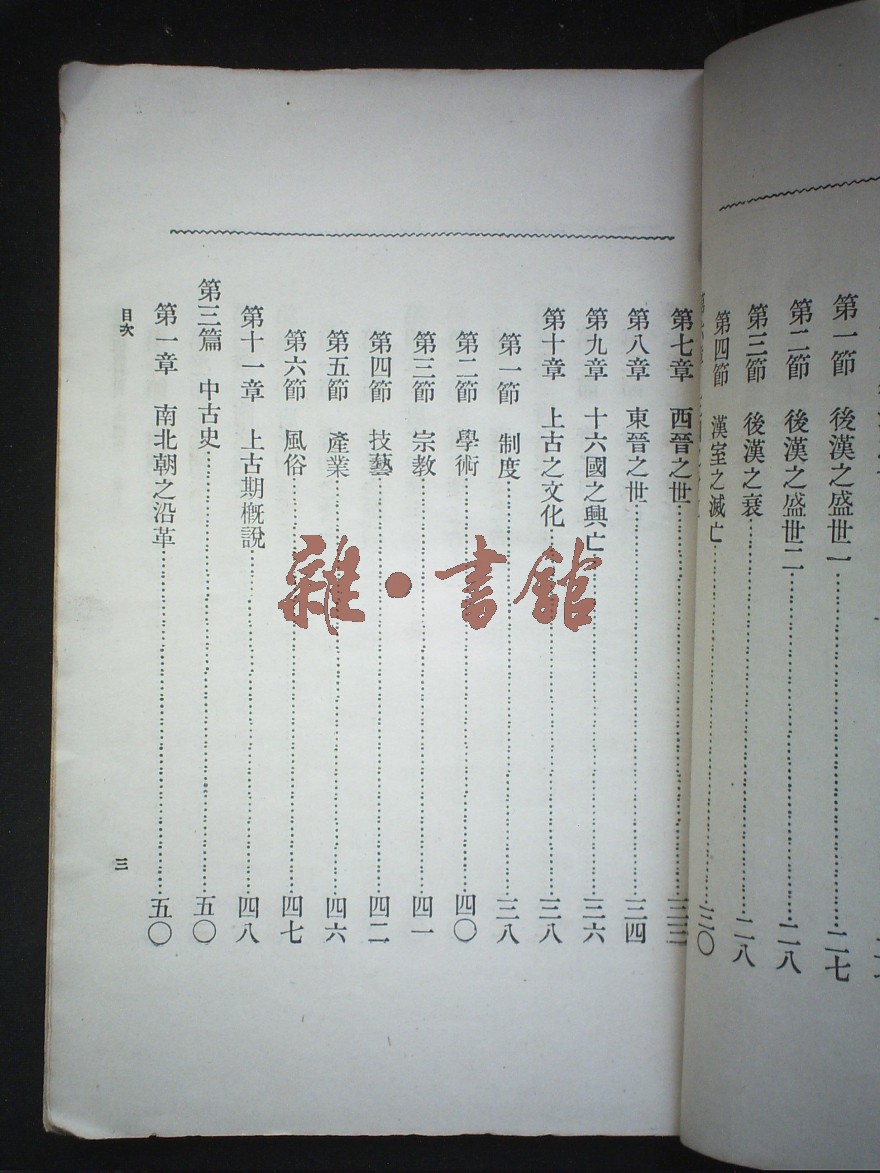 第一節 後漢之盛世一……二七
第二節 後漢之盛世二……二八
第三節 後漢之衰……二八
第四節 漢室之滅亡……三〇
第七章 西晉之世……三三
第八章 東晉之世……三四
第九章 十六國之興亡……三六
第十章 上古之文化……三八
第一節 制度……三八
第二節 學術……四〇
第三節 宗教……四一
第四節 技藝……四二
第五節 產業……四六
第六節 風俗……四七
第十一章 上古期概說……四八
第三篇 中古史……五〇
第一章 南北朝之沿革……五〇
目次
三
雜·書館